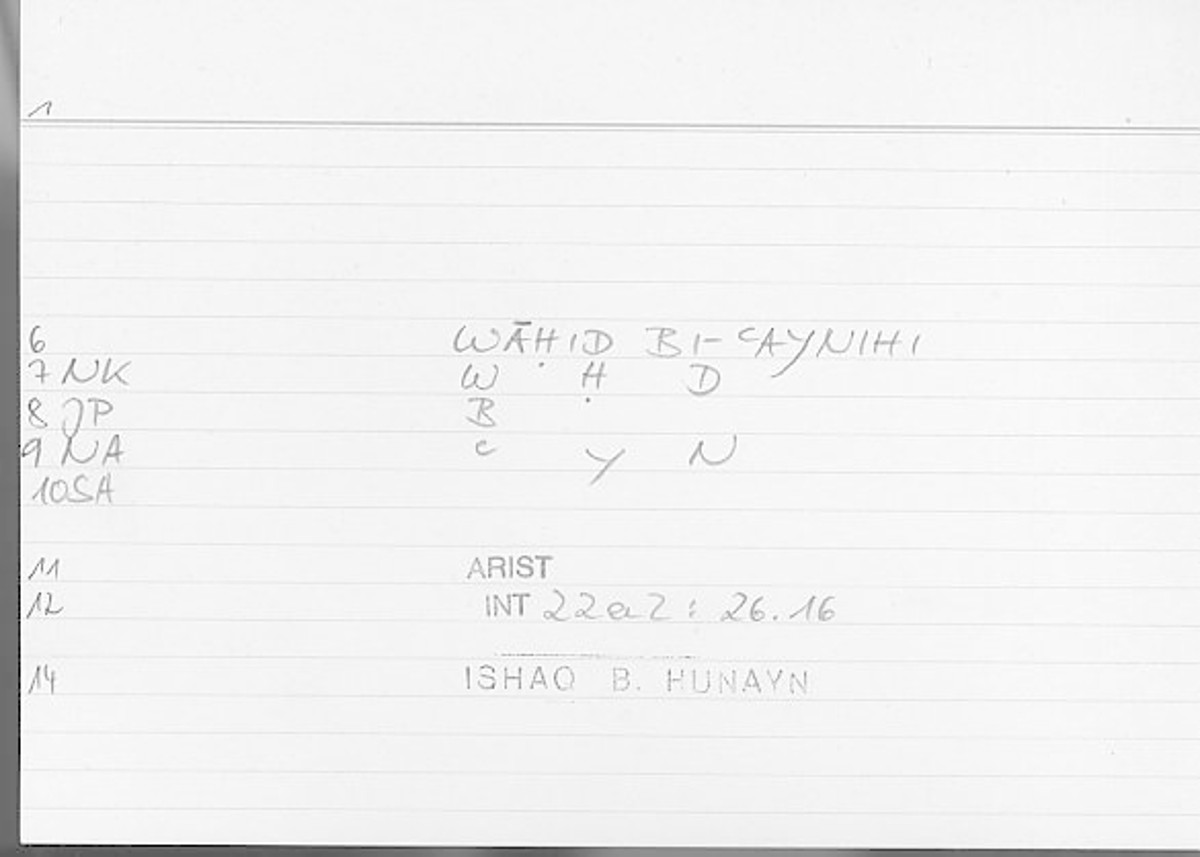 1
6 WĀḤID BI-ʿAYNIHI
7 NK W Ḥ D
8 JP B
9 NA ʿ Y N
10 SA
11 ARIST
12 INT 22a2 : 26.16
14 ISHAQ B. HUNAYN